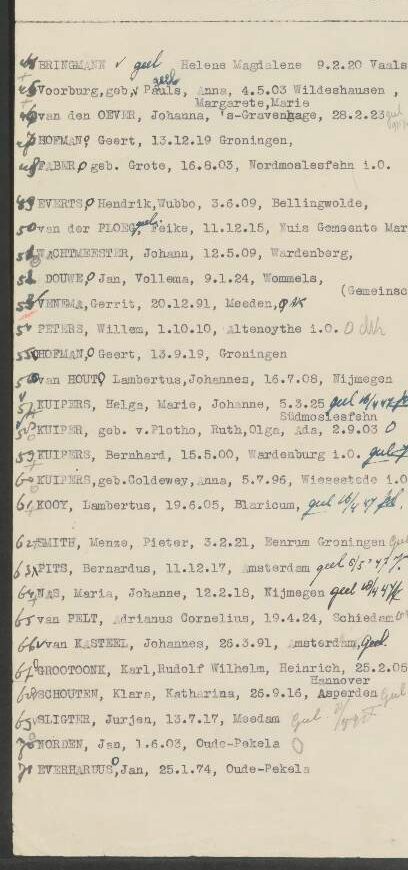 44 BRINGMANN geel Helene Magdalene 9.2.20 Vaals
45 Voorburg, geb. Pauls, Anna, 4.5.03 Wildeshausen ,
geel
Margarete, Marie
46 van den OEVER, Johanna, 's-Gravenhage, 28.2.23
47 HOFMAN, Geert, 13.12.19 Groningen,
48 FABER, geb. Grote, 16.8.03, Nordmoslesfehn i.O.
49 EVERTS, Hendrik, Wubbo, 3.6.09, Bellingwolde,
50 van der PLOEG, geel Feike, 11.12.15, Nuis Gemeente Mar
51 WACHTMEESTER, Johann, 12.5.09, Wardenberg,
52 DOUWE, Jan, Vollema, 9.1.24, Wommels,
(Gemeinsc
53 VENEMA, Gerrit, 20.12.91, Meeden,
54 PETERS, Willem, 1.10.10, Altenoythe i.O.
55 HOFMAN, Geert, 13.9.19, Groningen
56 van HOUT, Lambertus, Johannes, 16.7.08, Nijmegen
57 KUIPERS, Helga, Marie, Johanne, 5.3.25 geel 16/4 47
Südmoslesfehn
58 KUIPER, geb. v. Plotho, Ruth, Olga, Ada, 2.9.03 O
59 KUIPERS, Bernhard, 15.5.00, Wardenburg i.O. geel
60 KUIPERS, geb. Coldewey, Anna, 5.7.96, Wiesestede i.O
61 KOOY, Lambertus, 19.6.05, Blaricum, geel 16/4 47
62 SMITH, Menze, Pieter, 3.2.21, Eenrum Groningen
63 PITS, Bernardus, 11.12.17, Amsterdam geel 5/5 '47
64 NAS, Maria, Johanne, 12.2.18, Nijmegen geel 16/4 47
65 van PELT, Adrianus Cornelius, 19.4.24, Schiedam
66 van KASTEEL, Johannes, 26.3.91, Amsterdam, geel
67 GROOTOONK, Karl, Rudolf Wilhelm, Heinrich, 25.2.05
Hannover
68 SCHOUTEN, Klara, Katharina, 26.9.16, Asperden Geel
69 SLIGTER, Jurjen, 13.7.17, Meedam Geel
70 NORDEN, Jan, 1.6.03, Oude-Pekela O
71 EVERHARDUS, Jan, 25.1.74, Oude-Pekela